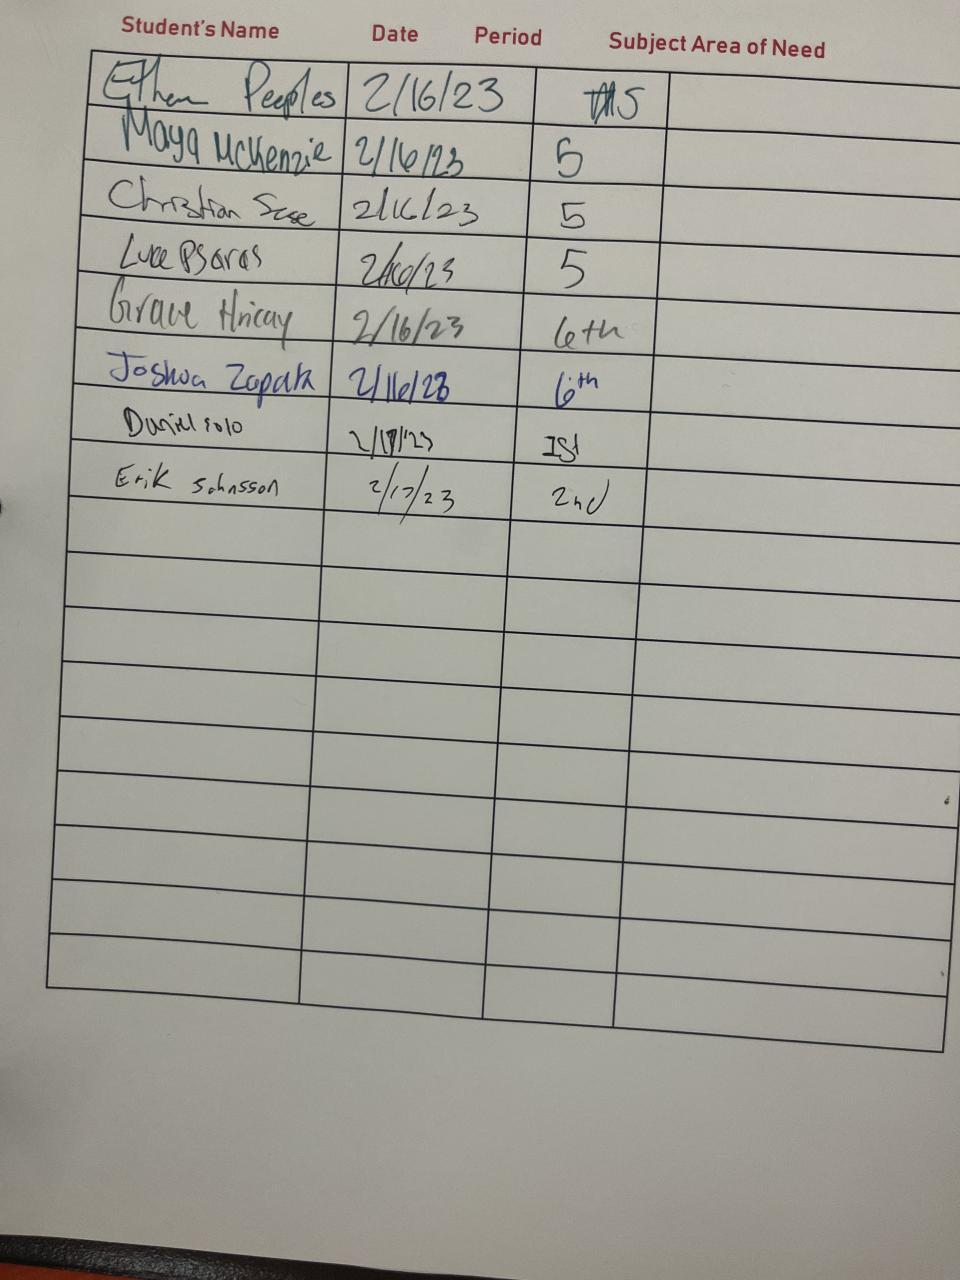 Student's Name Date Period Subject Area of Need
Ethan Peeples 2/16/23 5
Maya McKenzie 2/16/23 5
Christian 2/16/23 5
Luca Psaras 2/16/23 5
Grace Hricay 2/16/23 6th
Joshua Zapata 2/16/23 6th
Daniel Solo 2/17/23 1st
Erik 2/17/23 2nd